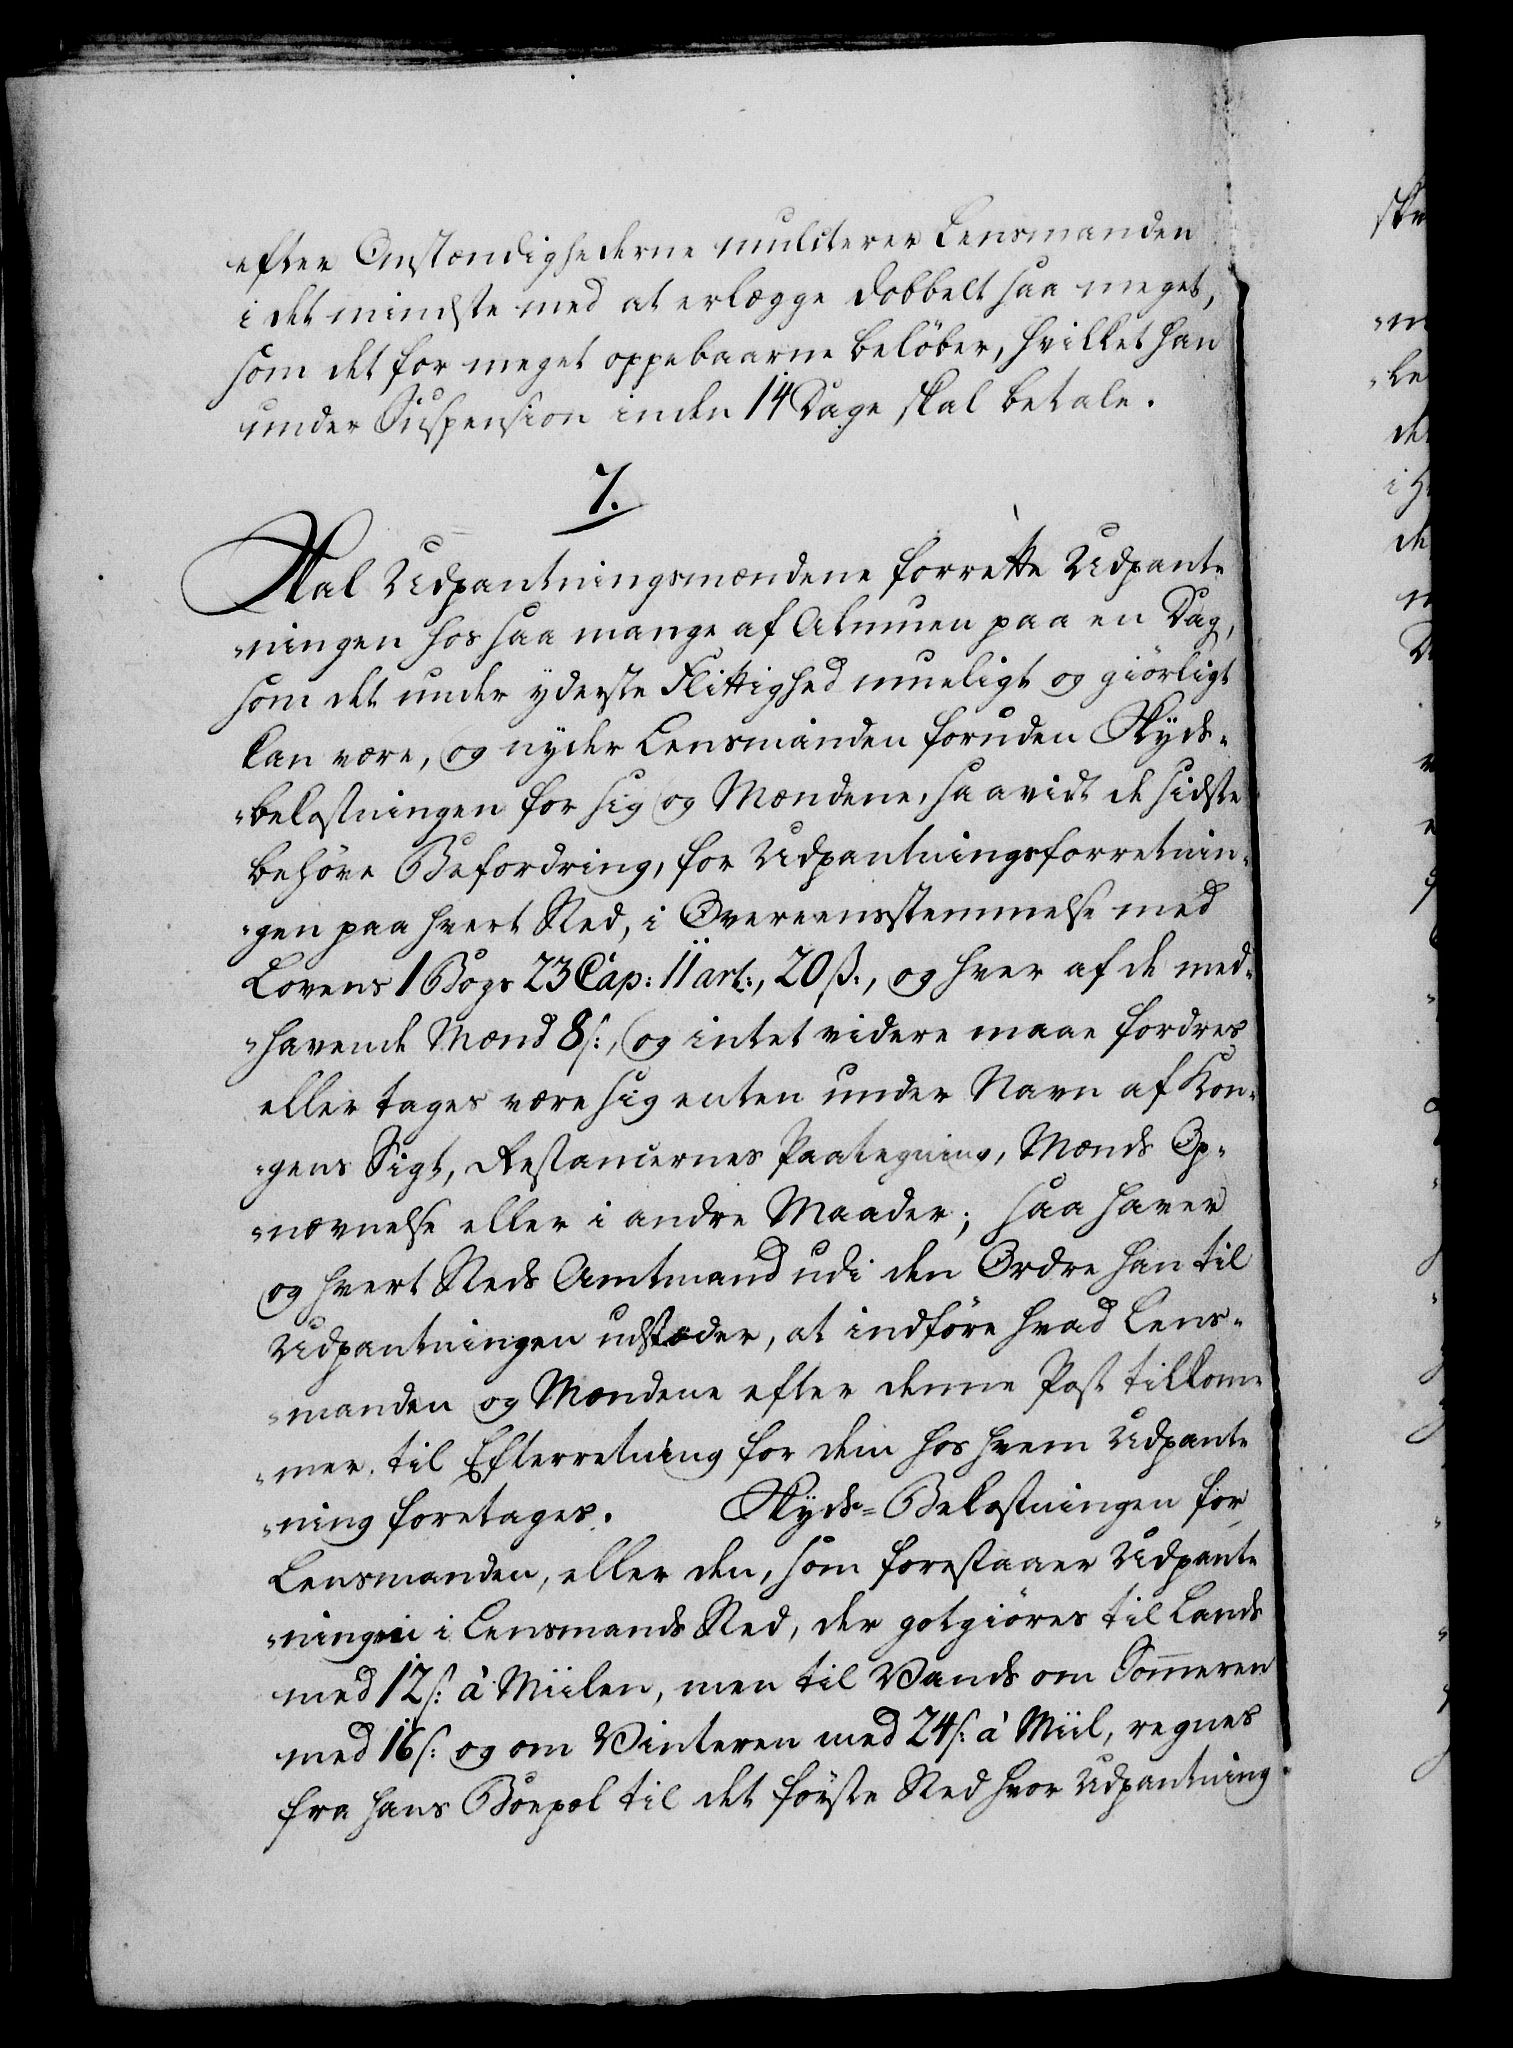 efter Omstændighederne mulcterer Lensmanden
i det mindste med at erlægge dobbelt saa meget,
som det for meget oppebaarne beløber, hvilket han
under Suspension inden 14 Dage skal betale.
7.
Skal Udpantningsmændene forrette Udpant-
"ningen hos saa mange af Almuen paa en Dag,
som det under yderste Flittighed mueligt og giörligt
kan være, og nyder Lensmanden foruden Skyds-
"bekostningen for sig og Mændene, saavidt de sidste
behöve Befordring, for Udpantningsforretnin-
"gen paa hvert Sted, i Overeensstemmelse med
Lovens 1 Bogs 23 Cap: 11 art:, 20 ß., og hver af de med-
"havende Mænd 8 s:, og intet videre maae fordres
eller tages være sig enten under Navn af Kon-
"gens Sigt, Restancernes Paategning, Mænds Op-
"nævnelse eller i andre Maader; saa haver
og hvert Steds Amtmand udi den Ordre han til
Udpantningen udstæder, at indföre hvad Lens-
"manden og Mændene efter denne Post tilkom-
"mer, til Efterretning for dem hos hvem Udpant-
"ning foretages. Skyds-Bekostningen for
Lensmanden, eller den, som forestaaer Udpant-
"ningen i Lensmands Sted, der gotgiöres til Lands
med 12 s: à Miilen, men til Vands om Sommeren
med 16 s: og om Vinteren med 24 s: à Miil, regnes
fra hans Boepæl til det förste Sted hvor Udpantning